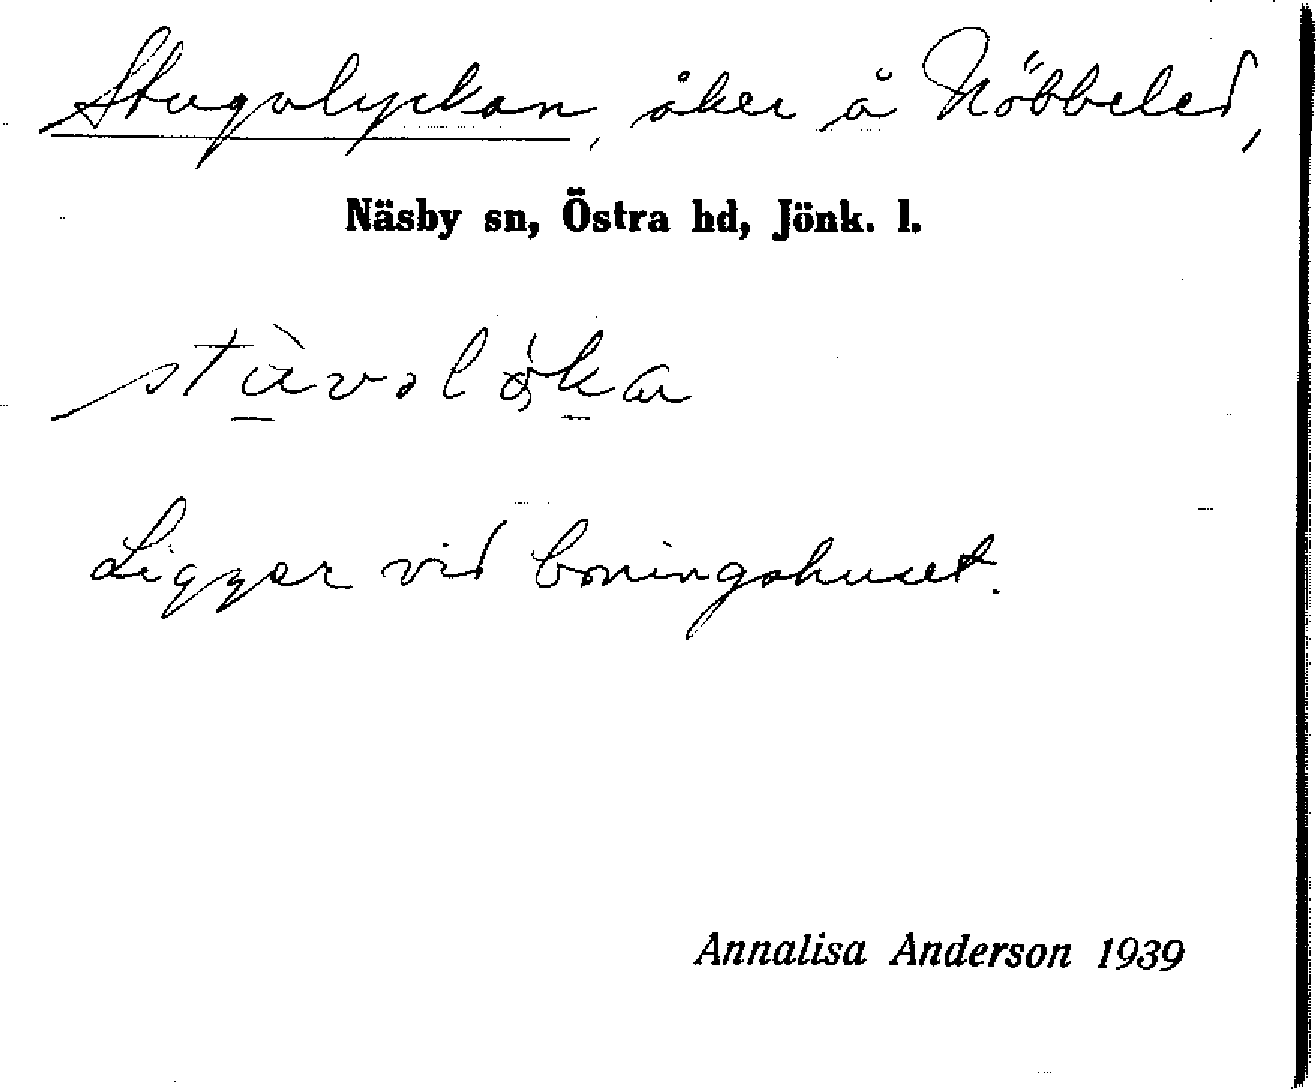 Stugulyckan, åker å Nöbbeled,
Näsby sn, Östra hd, Jönk. l.
Ligger vid boningshuset.
Annalisa Anderson 1939